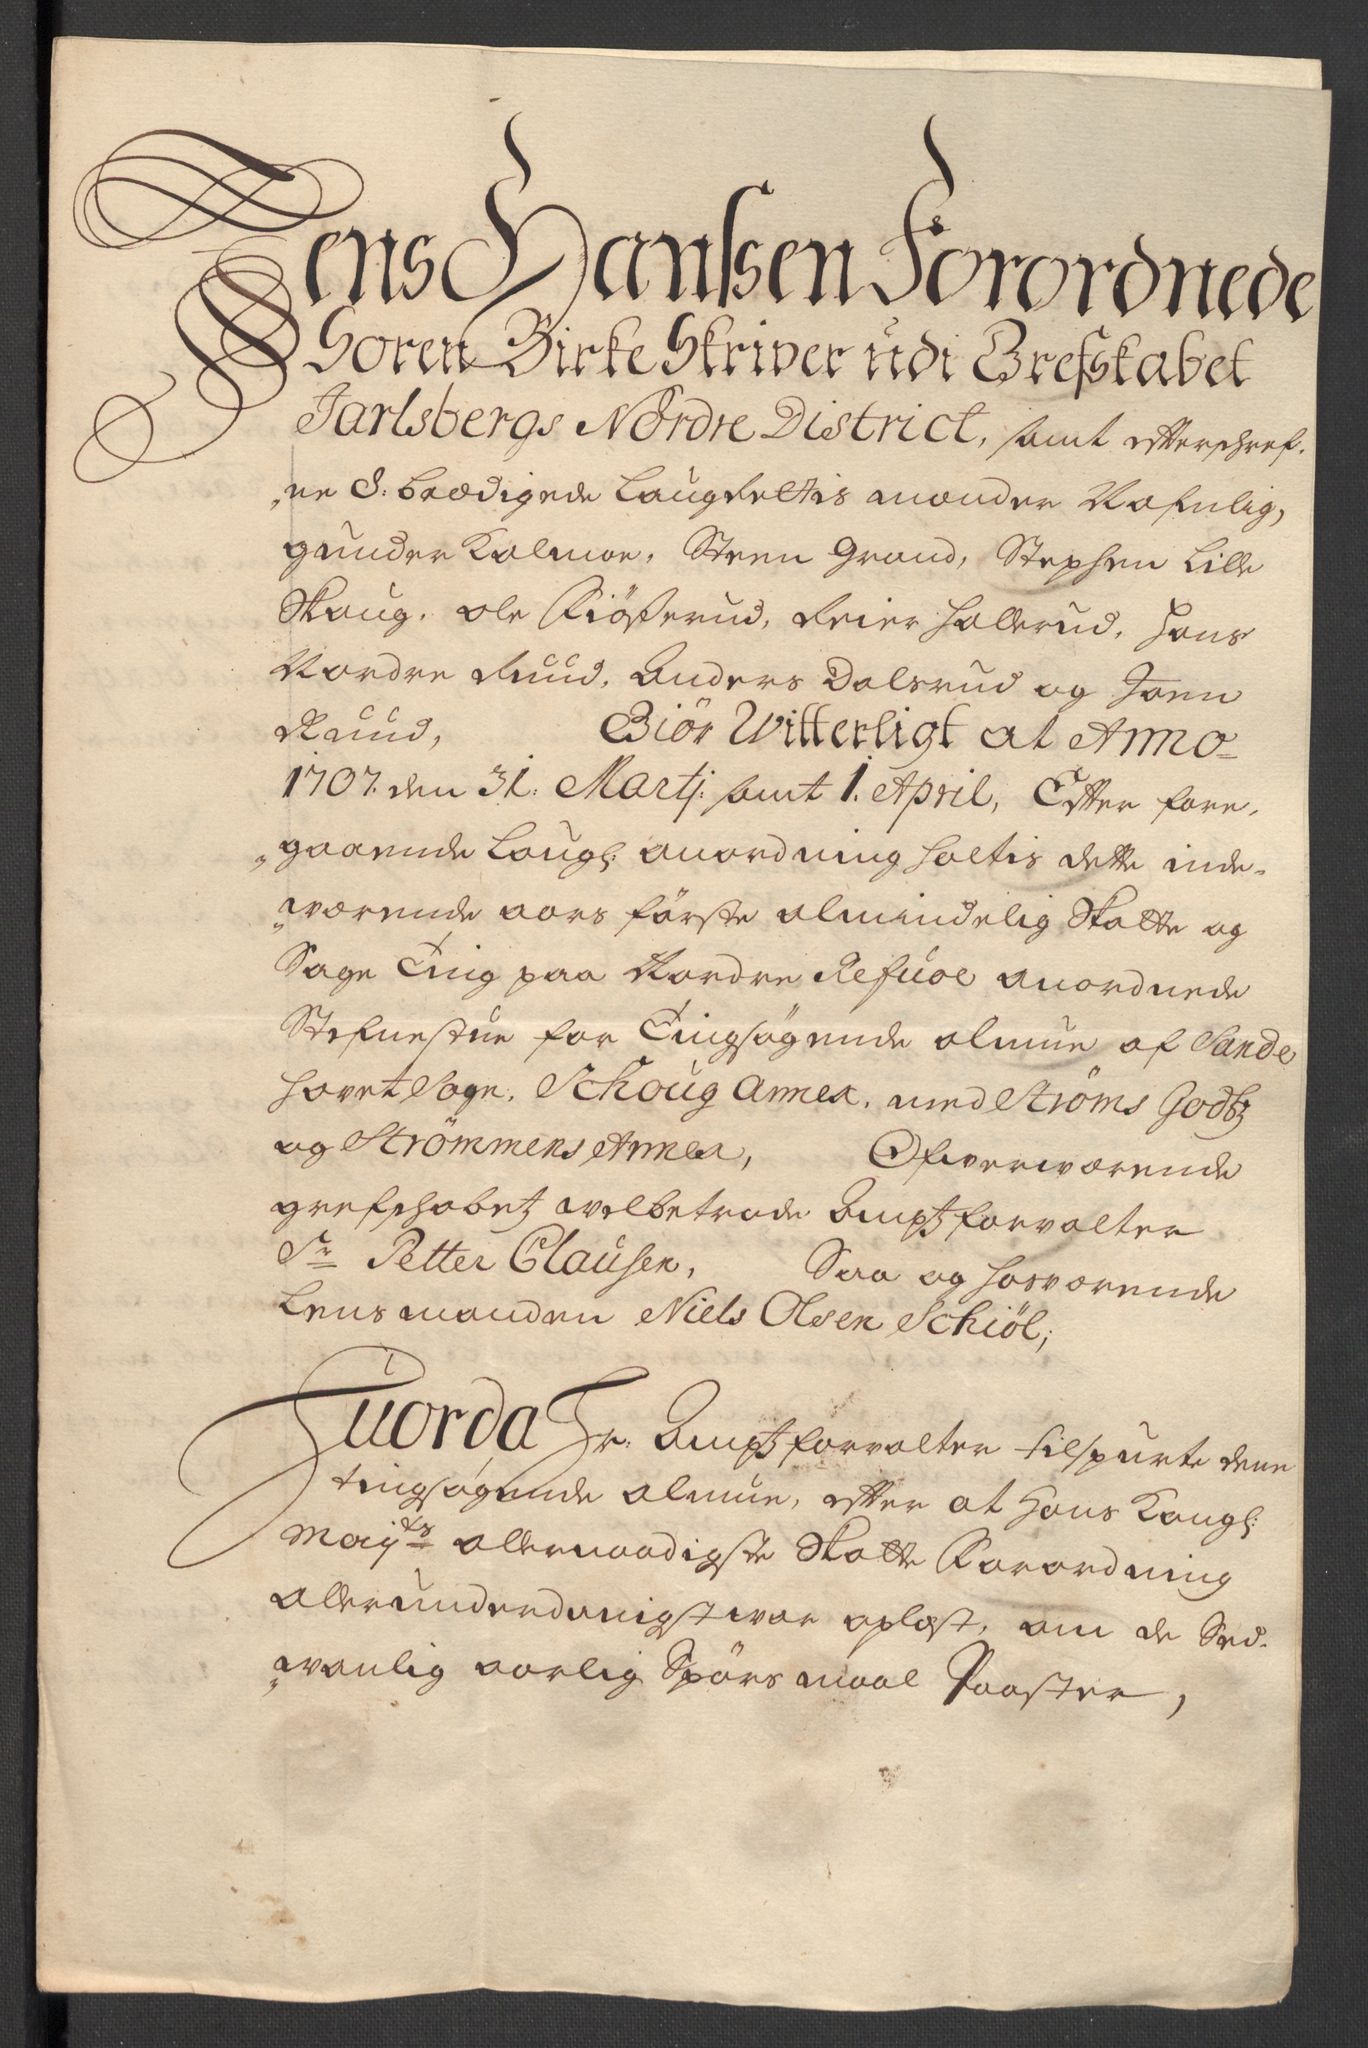 Jens Hanssen Forordnede
Soren Birke Skriver udi Grefskabet
Jarlsbergs Nordre District, samt efterschref-
ne 8: beædigede Laugrettis mænder Nafnlig,
gunder Kolmoe, Steen Grand, Stephen Lille
Skoug, ole Kiösterud, Reier Hallerud, Hans
Nordre Ruud, Anders Dalsrud og Joen
Ruud, Giör Witterligt at Anno
1707. den 31. Martj: samt 1. April, Efter fore-
gaaende Laugl: anordning holtis dette inde-
værende aars förste almindelig Skatte og
Sage Ting paa Nordre Refuoe anordnede
Stefnestue for Tingsøgende almue af Sande
Hovet Sogn, Schoug Annex, med Ströms Godtz
og Strömmens Annex, Ofwerværende
grefschabetz velbetrode Amptzforvalter
Sr Petter Clausen, Saa og hosværende
Lensmanden Niels Olsen Schiöl;
Huorda Hr: Amptzforvalter tilspurte denne
tingsøgende almue, efter at Hans Kongl:
Majts allernaadigste Skatte Forordning
allerunderdanigst war oplæst, om de Sed-
vanlig aarlig Spørsmaal Poster,